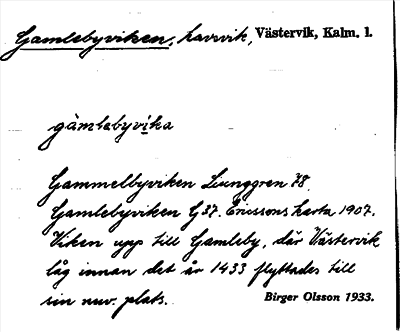 Gamlebyviken, havsvik, Västervik, Kalm. l.
gàmlebyvika
Gammelbyviken Ljunggren 78.
Gamlebyviken G37. Ericssons karta 1907.
Viken upp till Gamleby, där Västervik
låg innan det år 1433 flyttades till
sin nuv. plats. Birger Olsson 1933.